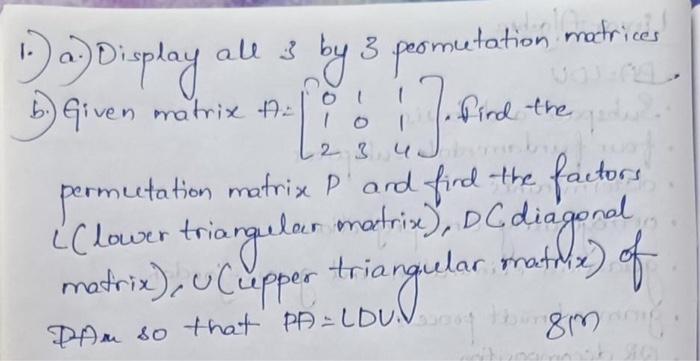 1.) a.) Display all 3 by 3 permutation matrices
b.) Given matrix A = [0 1 1
1 0 1
2 3 4]. find the
permutation matrix P and find the factors
L (lower triangular matrix), D (diagonal
matrix), U (upper triangular matrix) of
PA so that PA = LDU. 8M